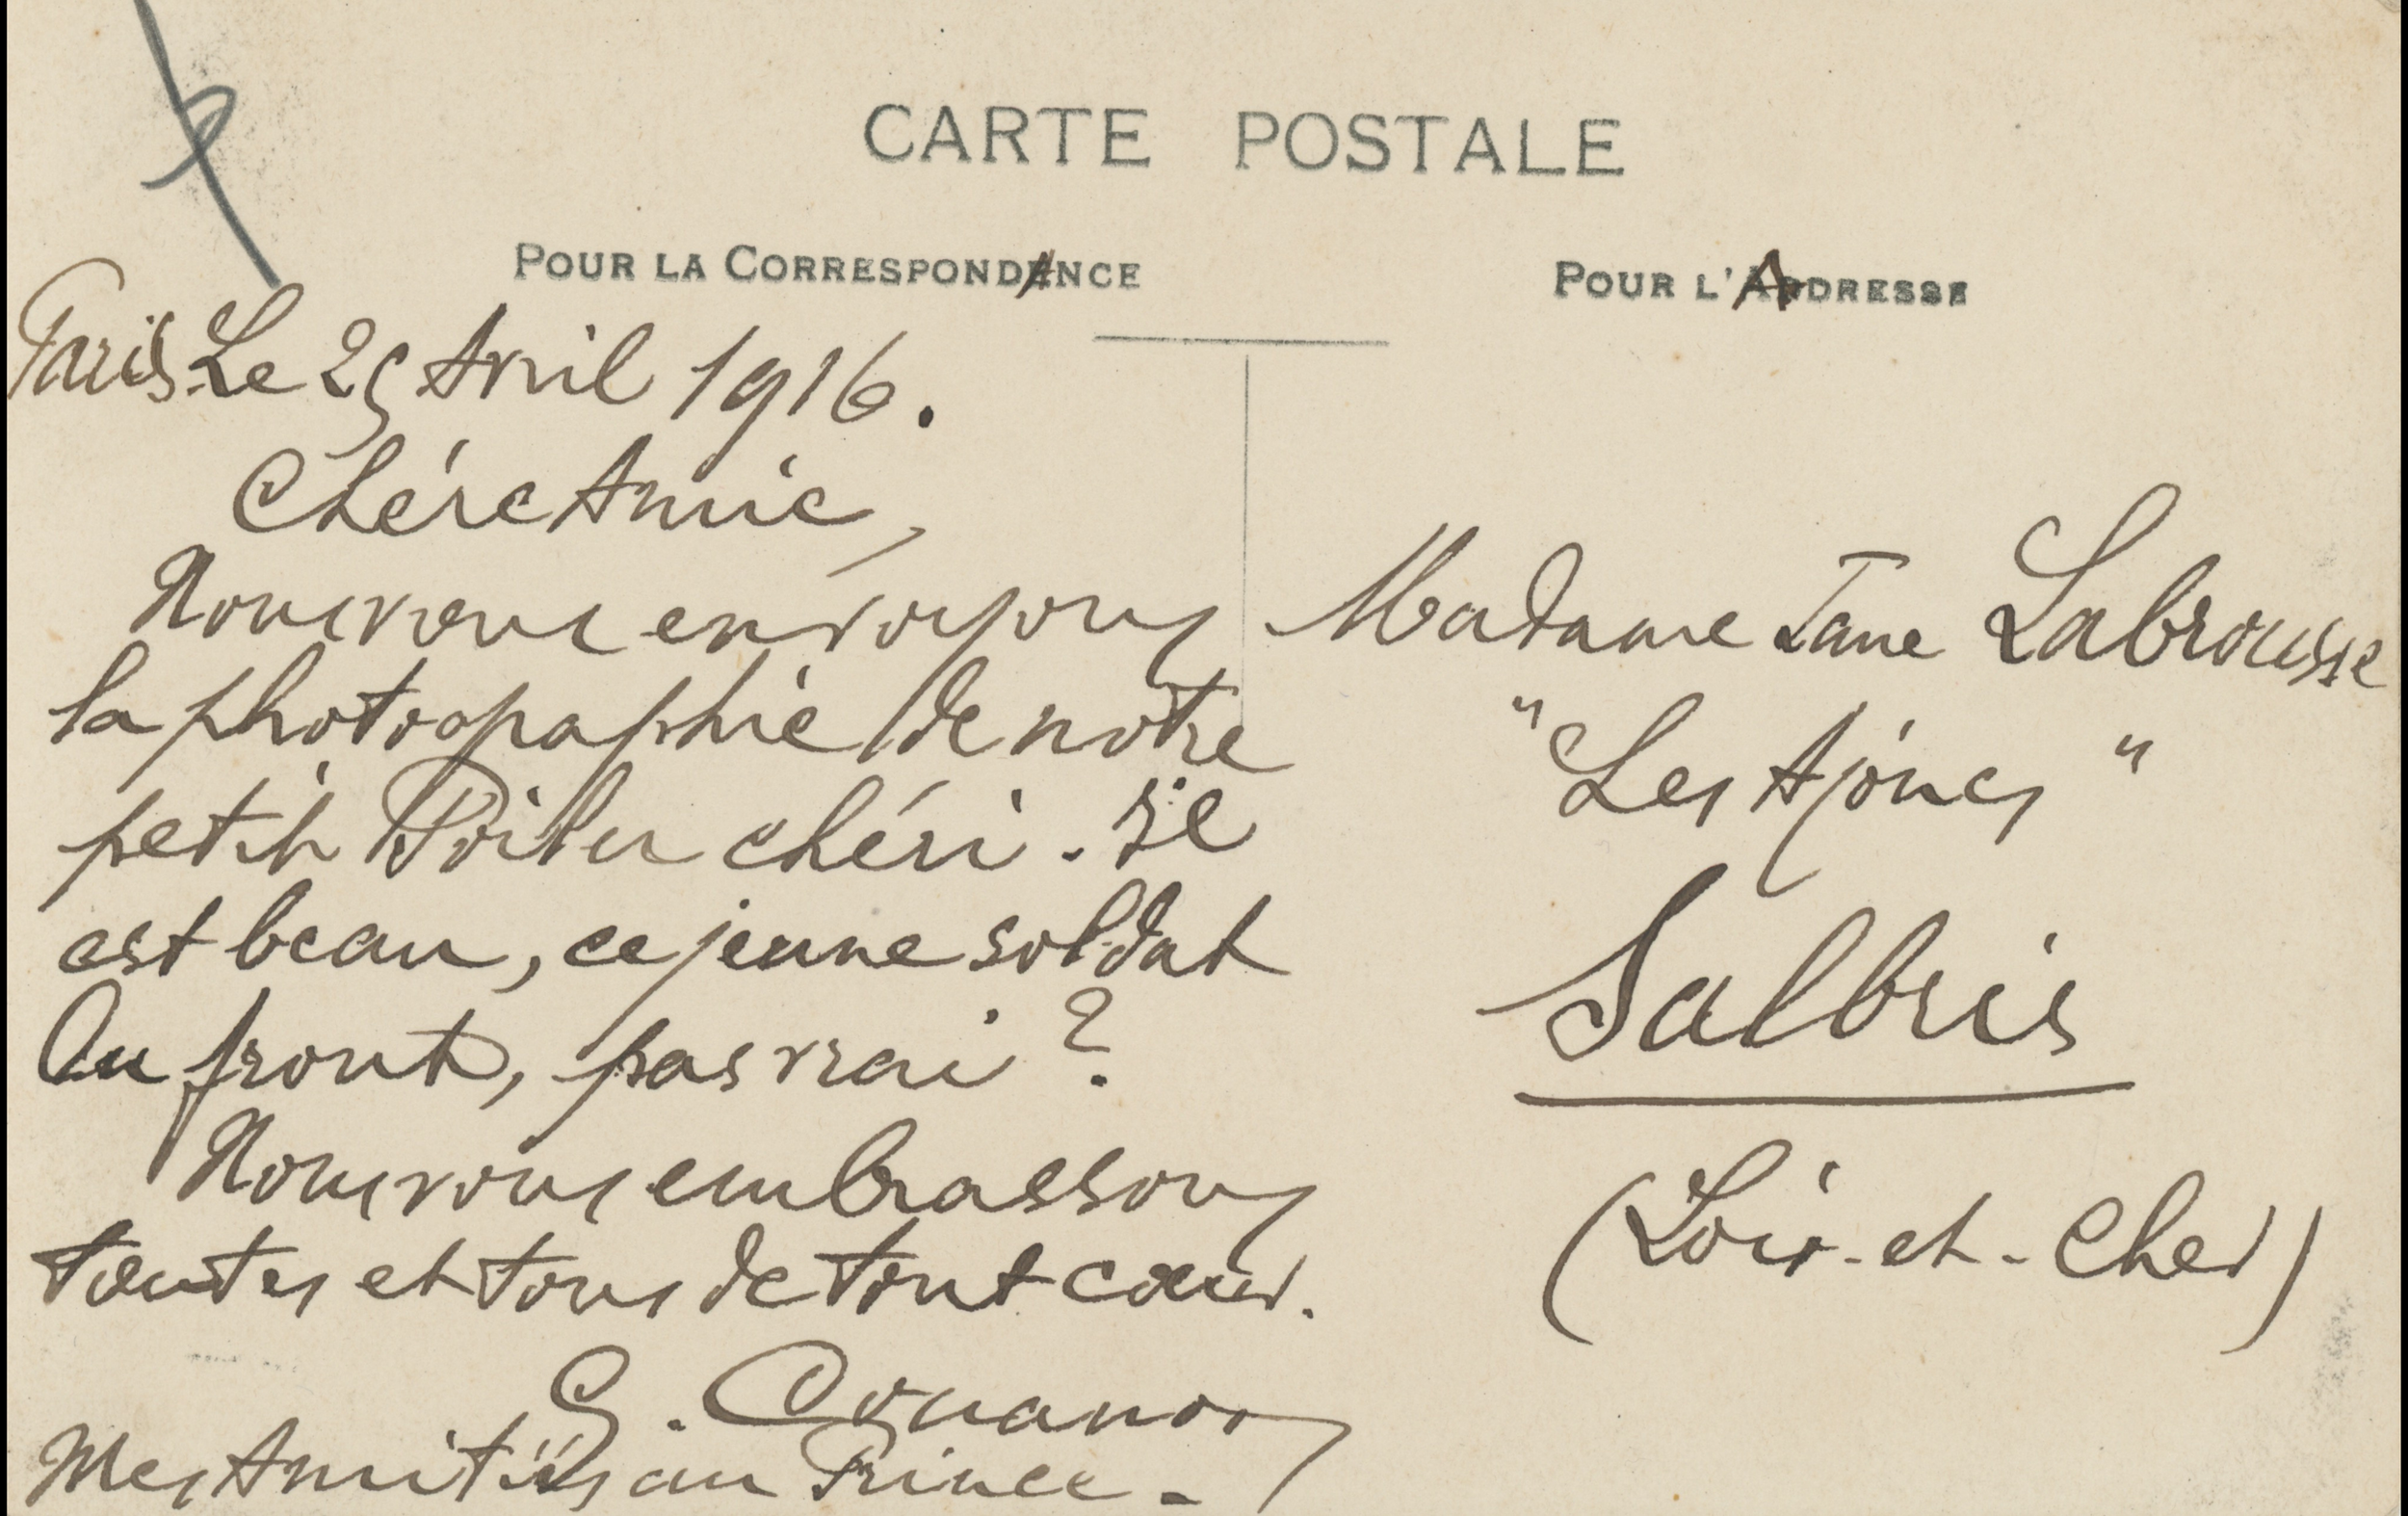 CARTE POSTALE
POUR LA CORRESPONDANCE
POUR L'ADRESSE
Paris Le 25 Avril 1916.
Chére Amie,
Nous vous envoyons
la photographie de notre
petit Poilu chéri. Il
est beau, ce jeune soldat
Au front, pas vrai ?
Nous vous embrassons
toutes et tous de tout cœur.
G.
Mes Amitiés au Prince.-
Madame Jane Labrousse
"Les Ajoncs"
Salbris
(Loir-et-Cher)